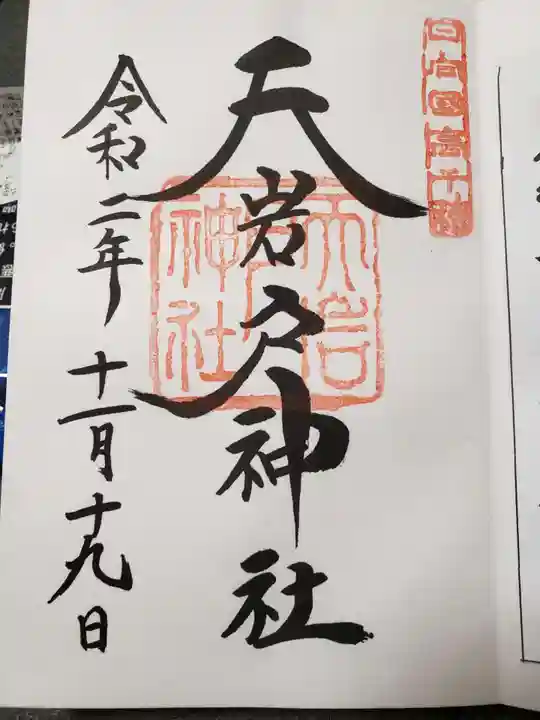 日向國高千穂
天岩戸神社
天岩
戸
神社
令和二年十一月十九日